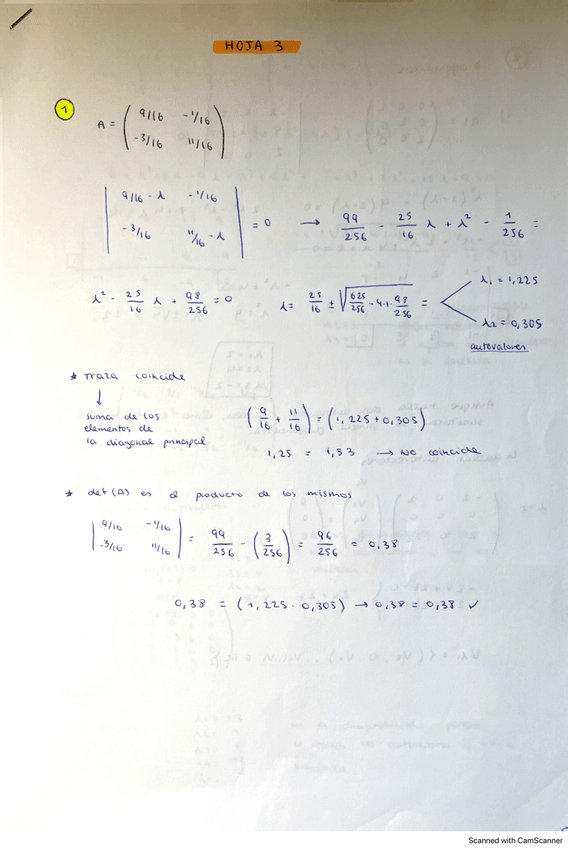 HOJA 3
1
A = ( 9/16 -1/16
-3/16 11/16 )
| 9/16 - λ -1/16
-3/16 11/16 - λ | = 0 → 99/256 - 25/16 λ + λ² - 1/256 =
λ² - 25/16 λ + 98/256 = 0 λ = 25/16 ± √(625/256 - 4·1·98/256) = λ₁ = 1,225
λ₂ = 0,305
autovalores
* Traza coincide
↓
suma de los
elementos de
la diagonal principal
(9/16 + 11/16) = (1,225 + 0,305)
1,25 = 1,53 → No coincide
* det(A) es el producto de los mismos
| 9/16 -1/16
-3/16 11/16 | = 99/256 - (3/256) = 96/256 = 0,38
0,38 = (1,225 · 0,305) → 0,38 = 0,38 ✓
Scanned with CamScanner